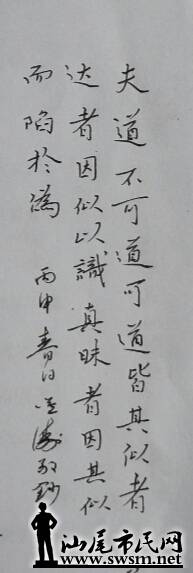 夫道不可道可道皆其似者
达者因似以識真昧者因其似
而陷於偽 丙申春日
敬鈔
汕尾市民网
www.swsm.net